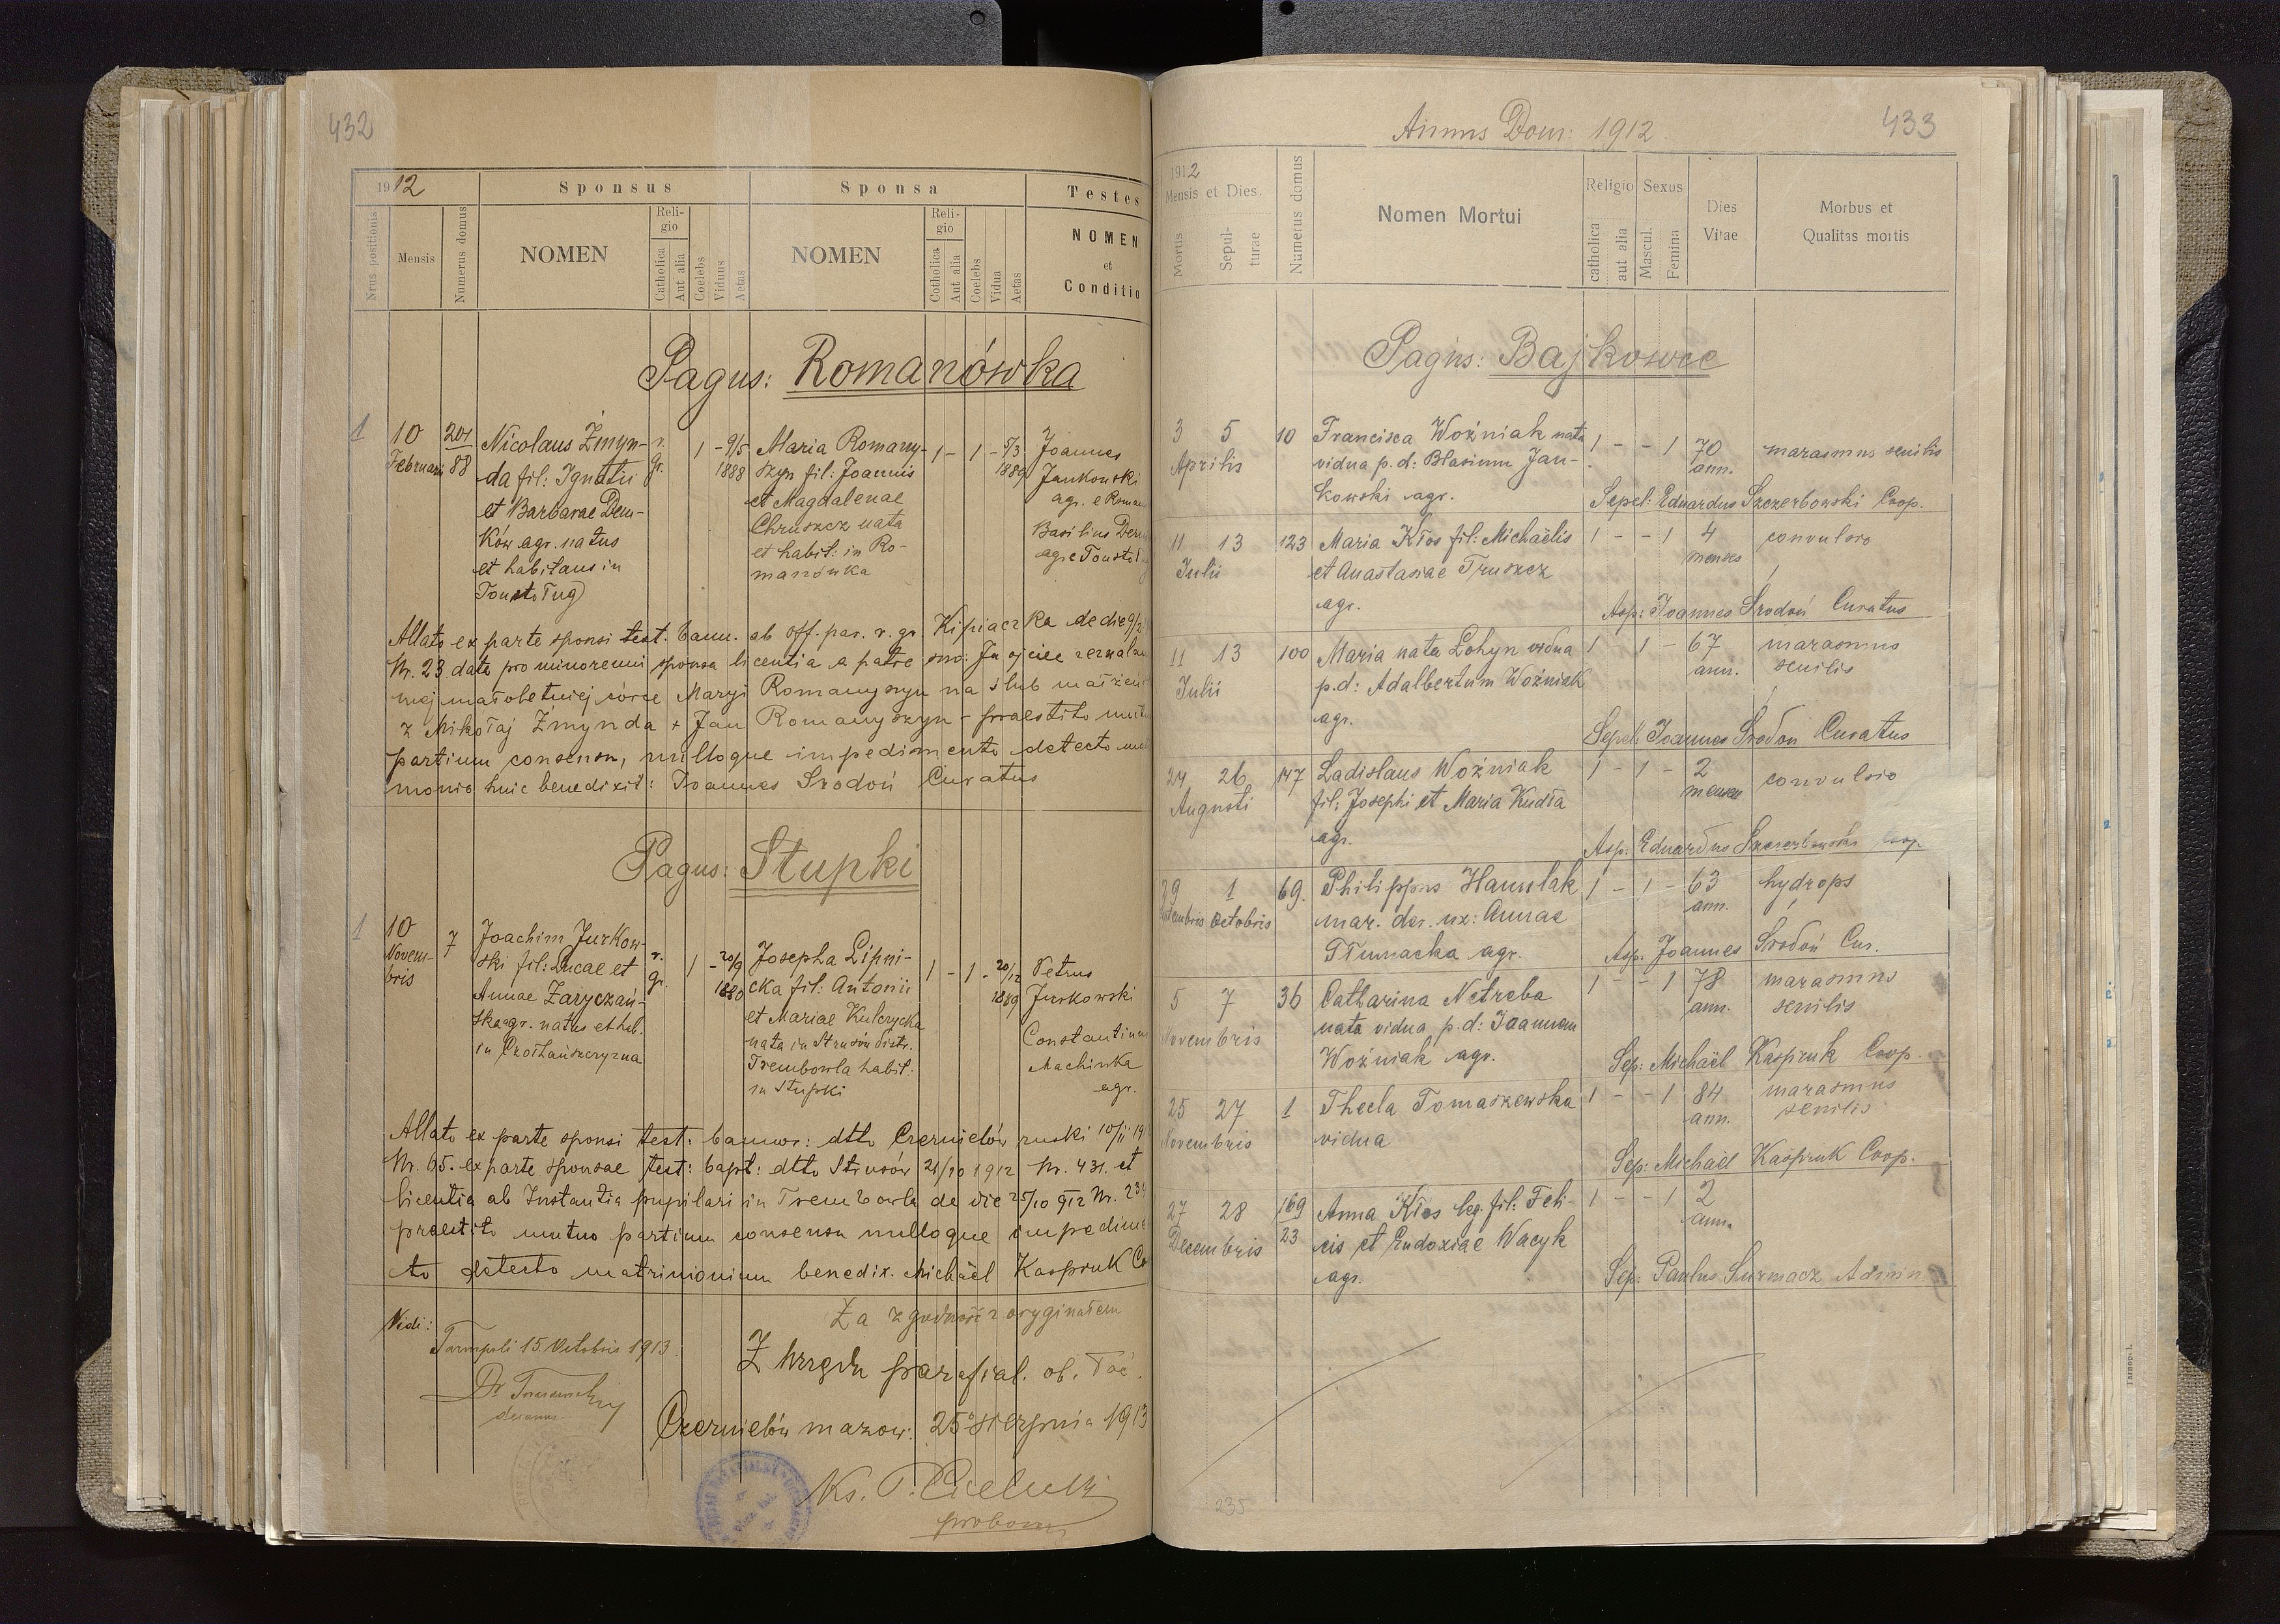 432
1912
Sponsus
Sponsa
Testes
Nrus positionis
Mensis
Numerus domus
NOMEN
Religio
Catholica
Aut alia
Coelebs
Viduus
Aetas
NOMEN
Religio
Catholica
Aut alia
Coelebs
Vidua
Aetas
NOMEN
et
Conditio
Pagus: Romanówka
1
10
Februarii
201
88
Nicolaus Żmyn-
da fil: Ignatii
et Barbarae Dem-
ków agr. natus
et habitans in
Toustoług
r.
gr.
1 - 9/5
1888
Maria Romany-
szyn fil: Joannis
et Magdalenae
Chruszcz nata
et habit: in Ro-
manówka
1 - 1 - 5/3
1889
Joannes
Jankowski
agr. e Roman
Basilius Dem
agr e Toustoł
Allato ex parte sponsi test. bann. ab off. par. r. gr. Kipiaczka de die 9/2
Nr. 23. dato pro minorenni sponsa licentia a patre suo: Ja ojciec zezwalam
mej małoletniej córce Maryi Romanyszyn na ślub małżeń
z Mikołaj Żmynda + Jan Romanyszyn - praestito mutu
partium consensu, nulloque impedimento detecto mat
monio huic benedixit: Joannes Środoń Curatus
Pagus: Stupki
1
10
Novem-
bris
7
Joachim Jurkow-
ski fil: Lucae et
Annae Zaryczań-
ska agr. natus et hab.
in
r.
gr.
1 - 20/9
1880
Josepha Lipni-
cka fil: Antonii
et Mariae Kulczycka
nata in Strusów distr.
Trembowla habit.
in Stupki
1 - 1 - 20/12
1889
Petrus
Jurkowski
Constantinus
Machinka
agr.
Allato ex parte sponsi test: bannor: dtto Czernielów ruski 10/11 19
Nr. 65. ex parte sponsae test: bapt: dtto Strusów 21/10 1912 Nr. 431. et
licentia ab Instantia pupilari in Trembowla de die 25/10 912 Nr. 234
praestito mutuo partium consensu nulloque impedimen
to detecto matrimonium benedix. Michaël Kaspruk Co
Vidi:
Tarnopoli 15. Octobris 1913.
decanus
Za zgodność z oryginałem
Z urzędu parafial. ob. łać.
Czernielów mazow. 25 sierpnia 1913
Ks. P.
proboszcz
Annus Dom: 1912.
433
1912
Mensis et Dies.
Mortis
Sepul-
turae
Numerus domus
Nomen Mortui
Religio
catholica
aut alia
Sexus
Mascul.
Femina
Dies
Vitae
Morbus et
Qualitas mortis
Pagus: Bajkowce
3 5 10 Francisca Woźniak nata 1 - - 1 70 marasmus senilis
Aprilis vidua p.d: Blasium Jan- ann.
kowski agr. Sepel: Eduardus Szczerbowski Coop.
11 13 123 Maria Kłos fil: Michaëlis 1 - - 1 4 convulsio
Julii et Anastasiae Truszcz menses
agr. Asp: Joannes Środoń Curatus
11 13 100 Maria nata Łohyn vidua 1 1 - 67 marasmus
Julii p.d: Adalbertum Woźniak ann. senilis
agr. Sepel: Joannes Środoń Curatus
24 26 147 Ladislaus Woźniak 1 - 1 - 2 convulsio
Augusti fil: Josephi et Maria Kudła menses
agr. Asp: Eduardus Szczerbowski Coop.
29 1 69. Philippus Hamulak 1 - 1 - 63 hydrops
Septembris Octobris mar. der. ux: Annae ann.
Tłumacka agr. Asp: Joannes Środoń Cur.
5 7 36 Catharina Netreba 1 - - 1 78 marasmus
Novembris nata vidua p.d: Joannem ann. senilis
Woźniak agr. Sep: Michaël Kaspruk Coop.
25 27 1 Thecla Tomaszewska 1 - - 1 84 marasmus
Novembris vidua ann. senilis
Sep: Michaël Kaspruk Coop.
27 28 169 Anna Kłos leg. fil: Feli- 1 - - 1 2
Decembris 23 cis et Eudoxiae Wacyk ann.
agr. Sep: Paulus Surmacz Admin
235